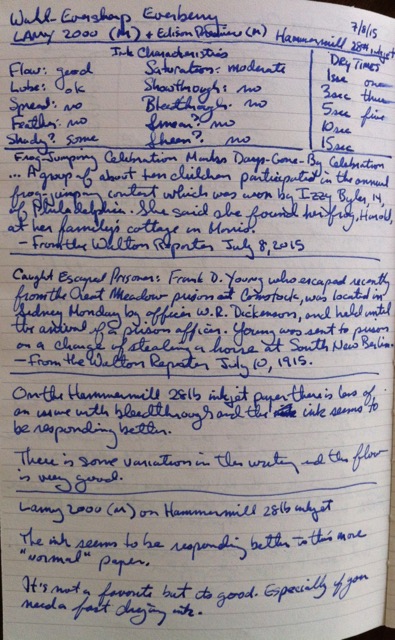 Wahl-Eversharp Everberry
7/9/15
LAMY 2000 (M) + Edison Premiere (M) Hammermill 28lb inkjet
Ink Characteristics
Dry Times
Flow: good Saturation: moderate
1sec one
Lube: ok Showthrough: no
3sec three
Spread: no Bleedthrough: no
5sec five
Feather: no Smear? no
10sec
Shady? some Sheen? no
15sec
Frog-Jumping Celebration Marks Days-Gone-By Celebration
... A group of about ten children participated in the annual
frog-jumping contest which was won by Izzy Byler, 14,
of Philadelphia. She said she found her frog, Harold,
at her family's cottage in
- From the Walton Reporter July 8, 2015
Caught Escaped Prisoner: Frank D. Young who escaped recently
from the Great Meadow prison at Comstock, was located in
Sidney Monday by officer W.R. Dickenson, and held until
the arrival of a prison officer. Young was sent to prison
on a charge of stealing a horse at South New Berlin.
- From the Walton Reporter July 10, 1915.
On the Hammermill 28lb inkjet paper there is less of
an issue with bleedthrough and the ink seems to
be responding better.
There is some variation in the writing and the flow
is very good.
Lamy 2000 (M) on Hammermill 28lb inkjet
The ink seems to be responding better to this more
"normal" paper.
It's not a favorite but do good. Especially if you
need a fast drying ink.